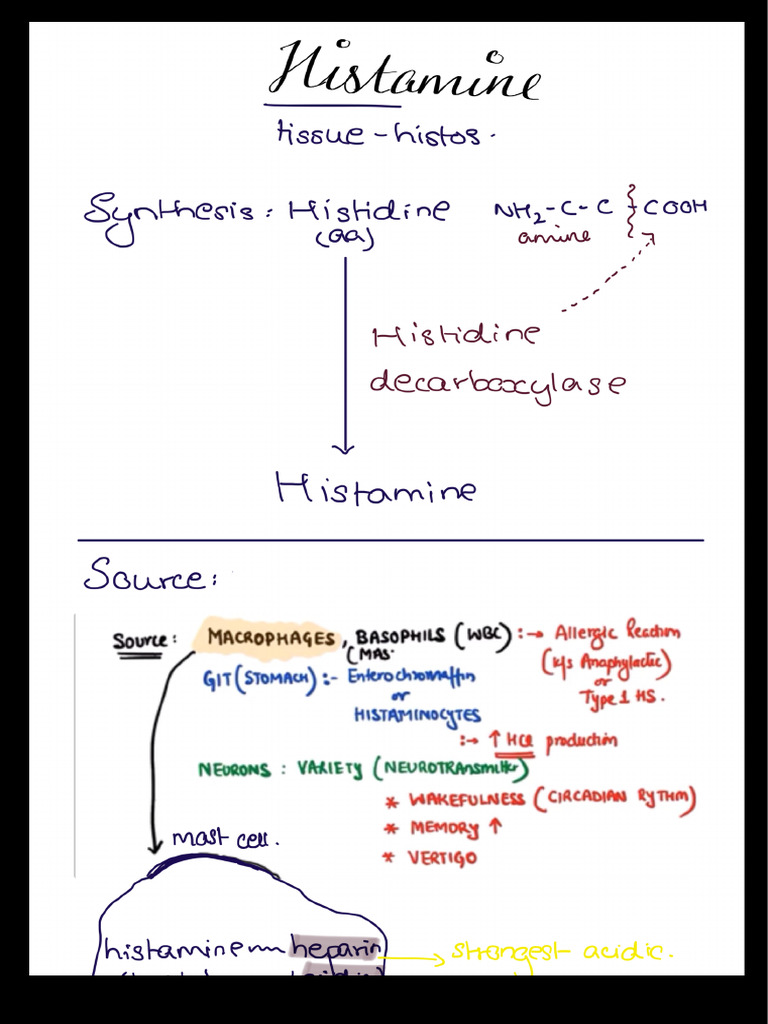 Histamine
tissue - histos.
Synthesis : Histidine NH2-C-C COOH
(aa) amine
Histidine
decarboxylase
Histamine
Source:
Source : MACROPHAGES, BASOPHILS (WBC) :→ Allergic Reaction
(MAS (k/s Anaphylactic)
GIT (STOMACH) :- Enterochromaffin or
or Type 1 HS.
HISTAMINOCYTES
:→ ↑ HCl production
NEURONS : VARIETY (NEUROTRANSmitter)
* WAKEFULNESS (CIRCADIAN RYTHM)
* MEMORY ↑
* VERTIGO
mast cell.
histamine heparin → strongest acidic.